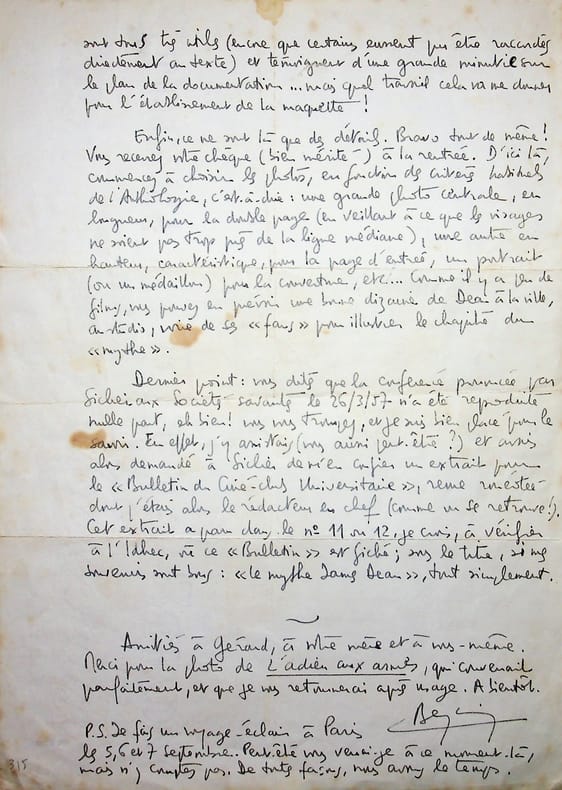 sont tous très utiles (encore que certains eussent pu être raccordés
directement au texte) et témoignent d'une grande minutie sur
le plan de la documentation ... mais quel travail cela va me donner
pour l'établissement de la maquette !
Enfin, ce ne sont là que des détails. Bravo tout de même !
Vous recevrez votre chèque (bien mérité) à la rentrée. D'ici là,
commencez à choisir les photos, en fonction des critères habituels
de l'Anthologie, c'est-à-dire : une grande photo centrale, en
longueur, pour la double page (en veillant à ce que les visages
ne soient pas trop près de la ligne médiane), une autre en
hauteur, caractéristique, pour la page d'entrée, un portrait
(ou un médaillon) pour la couverture, etc... Comme il y a peu de
films, vous pouvez en prévoir une bonne dizaine de Dean à la ville,
au studio, voire de ses « fans » pour illustrer le chapitre du
« mythe ».
Dernier point : vous dites que la conférence prononcée par
Siclier aux Sociétés savantes le 26/3/57 n'a été reproduite
nulle part, eh bien ! vous vous trompez, et je suis bien placé pour le
savoir. En effet, j'y assistais (vous aussi peut-être ?) et avais
alors demandé à Siclier de m'en confier un extrait pour
le « Bulletin du Ciné-club Universitaire », revue ronéotée
dont j'étais alors le rédacteur en chef (comme on se retrouve !).
Cet extrait a paru dans le n° 11 ou 12, je crois, à vérifier
à l'Idhec, où ce « Bulletin » est fiché ; sous le titre, si mes
souvenirs sont bons : « le mythe James Dean », tout simplement.
Amitiés à Gérard, à votre mère et à vous-même.
Merci pour la photo de L'adieu aux armes, qui convenait
parfaitement, et que je vous retournerai après usage. A bientôt.
P.S. Je fais un voyage-éclair à Paris
les 5, 6 et 7 Septembre. Peut-être vous verrai-je à ce moment-là,
mais n'y comptez pas. De toutes façons, nous avons le temps.
315